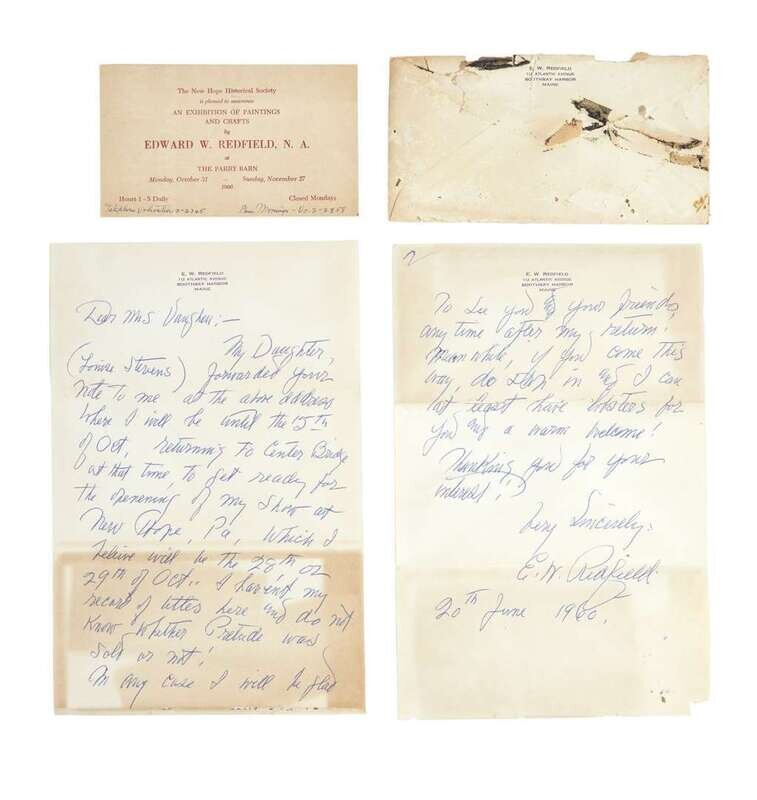 The New Hope Historical Society
is pleased to announce
AN EXHIBITION OF PAINTINGS
AND CRAFTS
by
EDWARD W. REDFIELD, N. A.
at
THE PARRY BARN
Monday, October 31 – Sunday, November 27
1960
Hours 1 - 5 Daily Closed Mondays
Telephone Volunteer 2-2765
Vo. 2-2958
E. W. REDFIELD
112 ATLANTIC AVENUE
BOOTHBAY HARBOR
MAINE
E. W. REDFIELD
112 ATLANTIC AVENUE
BOOTHBAY HARBOR
MAINE
Dear Mrs Vaughen:—
My Daughter,
(Louise Stevens) forwarded your
note to me at the above address
where I will be until the 15th
of Oct, returning to Center Bridge
at that time, to get ready for
the openening of my show at
New Hope, Pa, which I
beleive will be the 28th or
29th of Oct.. I haven't my
record of titles here and do not
know whether Prelude was
sold or not!
In any case I will be glad
2
E. W. REDFIELD
112 ATLANTIC AVENUE
BOOTHBAY HARBOR
MAINE
To see you & your friends,
any time after my return!
Meanwhile, if you come this
way, do stop in as I can
at least have lobsters for
you and a warm welcome!
Thanking you for your
interest!
Very Sincerely:
E. W. Redfield.
20th June 1960.